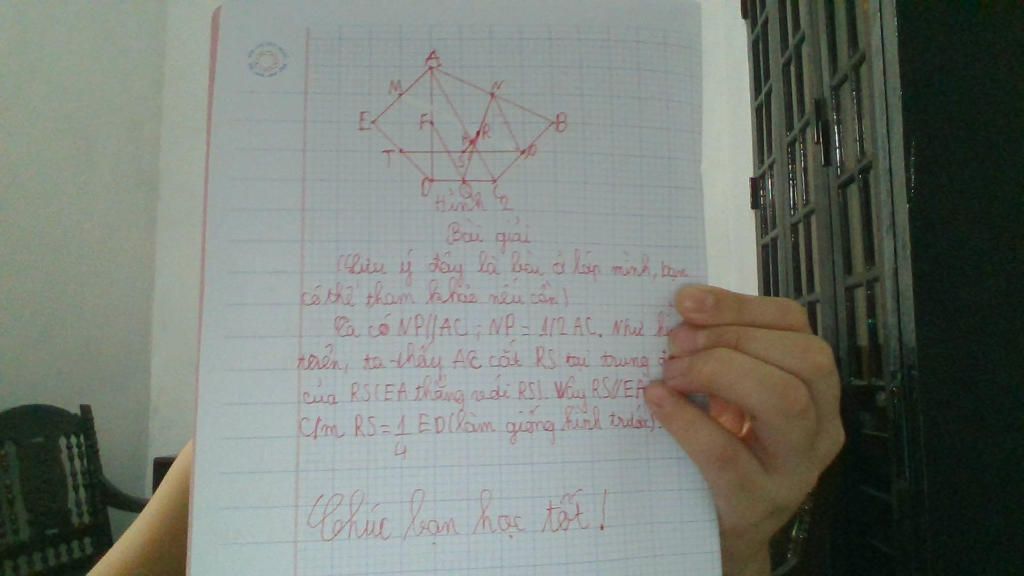 A
M
N
E
F
B
K
R
T
S
P
D
Q
C
Hình 2
Bài giải
(Lưu ý đây là bài ở lớp mình, bạn
có thể tham khảo nếu cần)
Ta có NP//AC; NP = 1/2 AC. Như
trên, ta thấy AC cắt RS tại trung
của RS(EA thẳng với RS). Vậy RS//EA
C/m RS = 1/4 ED(làm giống hình trước).
Chúc bạn học tốt!